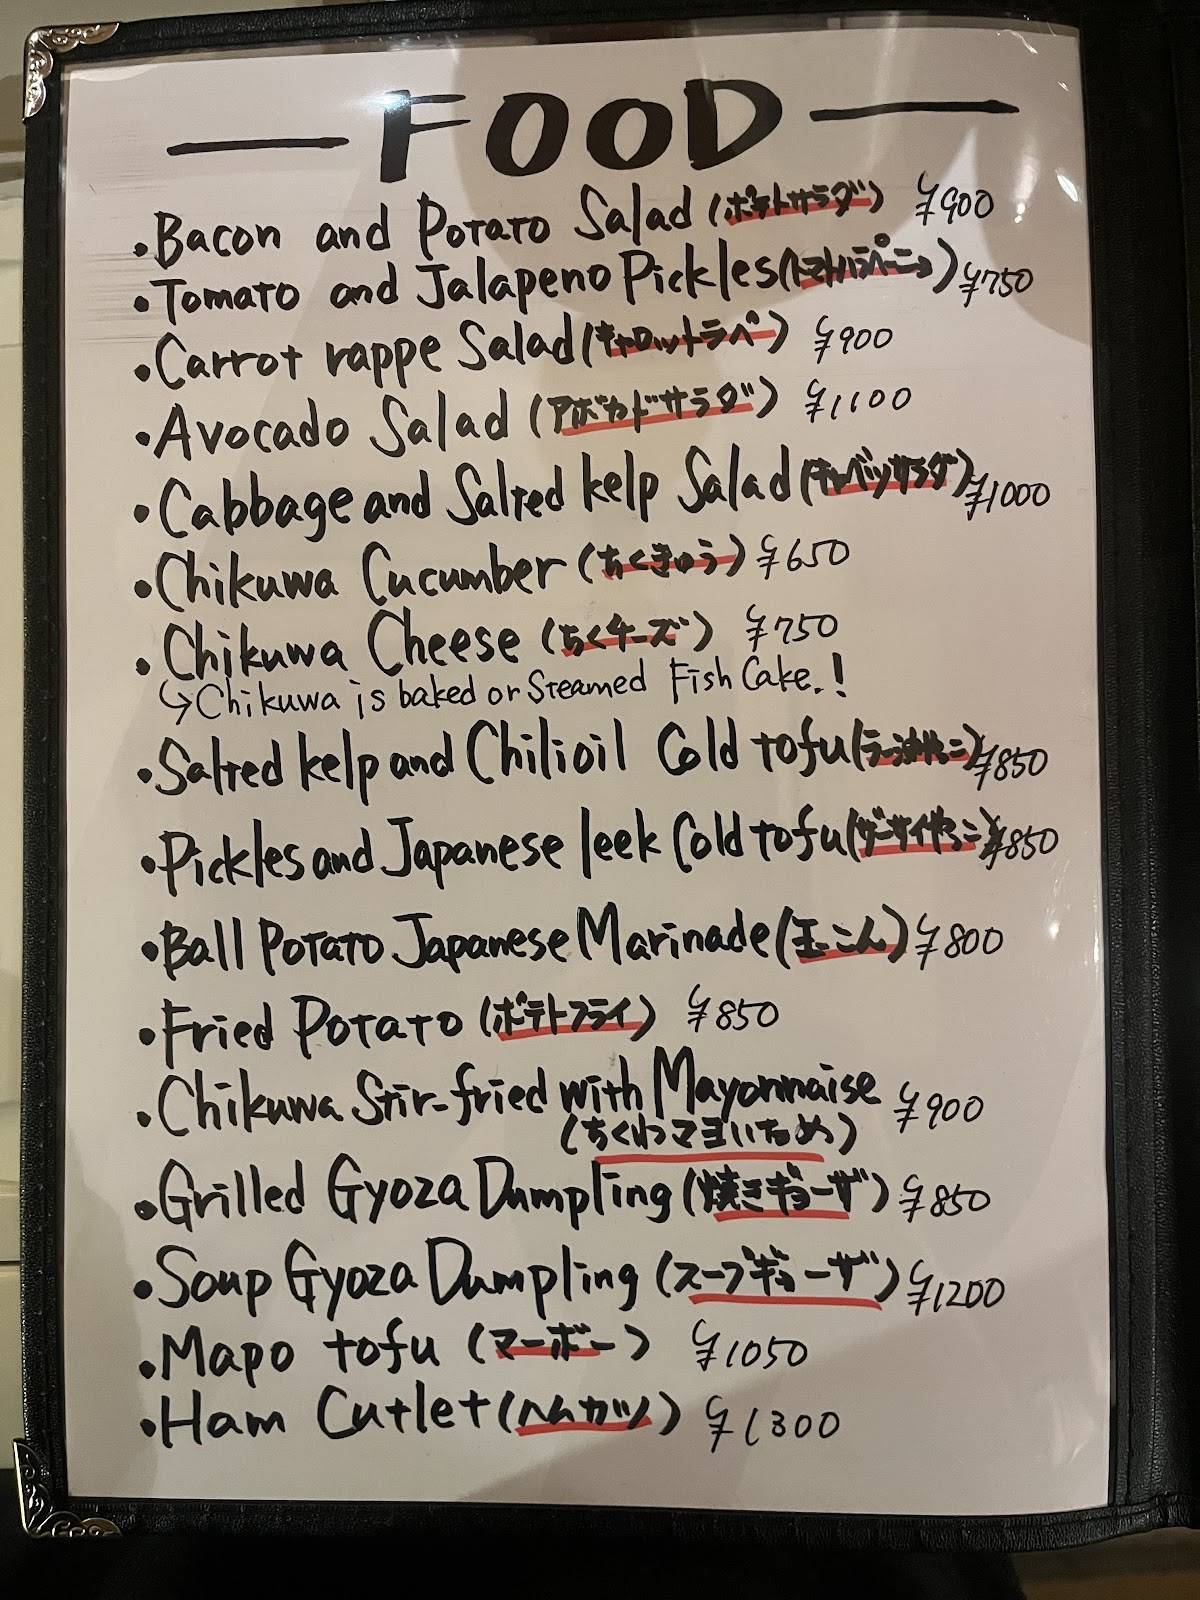 — FOOD —
・Bacon and Potato Salad (ポテトサラダ) ¥900
・Tomato and Jalapeno Pickles (トマトハラペーニョ) ¥750
・Carrot rappe Salad (キャロットラペ) ¥900
・Avocado Salad (アボカドサラダ) ¥1100
・Cabbage and Salted kelp Salad (キャベツサラダ) ¥1000
・Chikuwa Cucumber (ちくきゅう) ¥650
・Chikuwa Cheese (ちくチーズ) ¥750
↳Chikuwa is baked or Steamed Fish Cake.!
・Salted kelp and Chilioil Cold tofu (ラー油やっこ) ¥850
・Pickles and Japanese leek Cold tofu (ザーサイやっこ) ¥850
・Ball Potato Japanese Marinade (玉こん) ¥800
・Fried Potato (ポテトフライ) ¥850
・Chikuwa Stir-fried with Mayonnaise ¥900
(ちくわマヨいため)
・Grilled Gyoza Dumpling (焼きギョーザ) ¥850
・Soup Gyoza Dumpling (スープギョーザ) ¥1200
・Mapo tofu (マーボー) ¥1050
・Ham Cutlet (ハムカツ) ¥1300